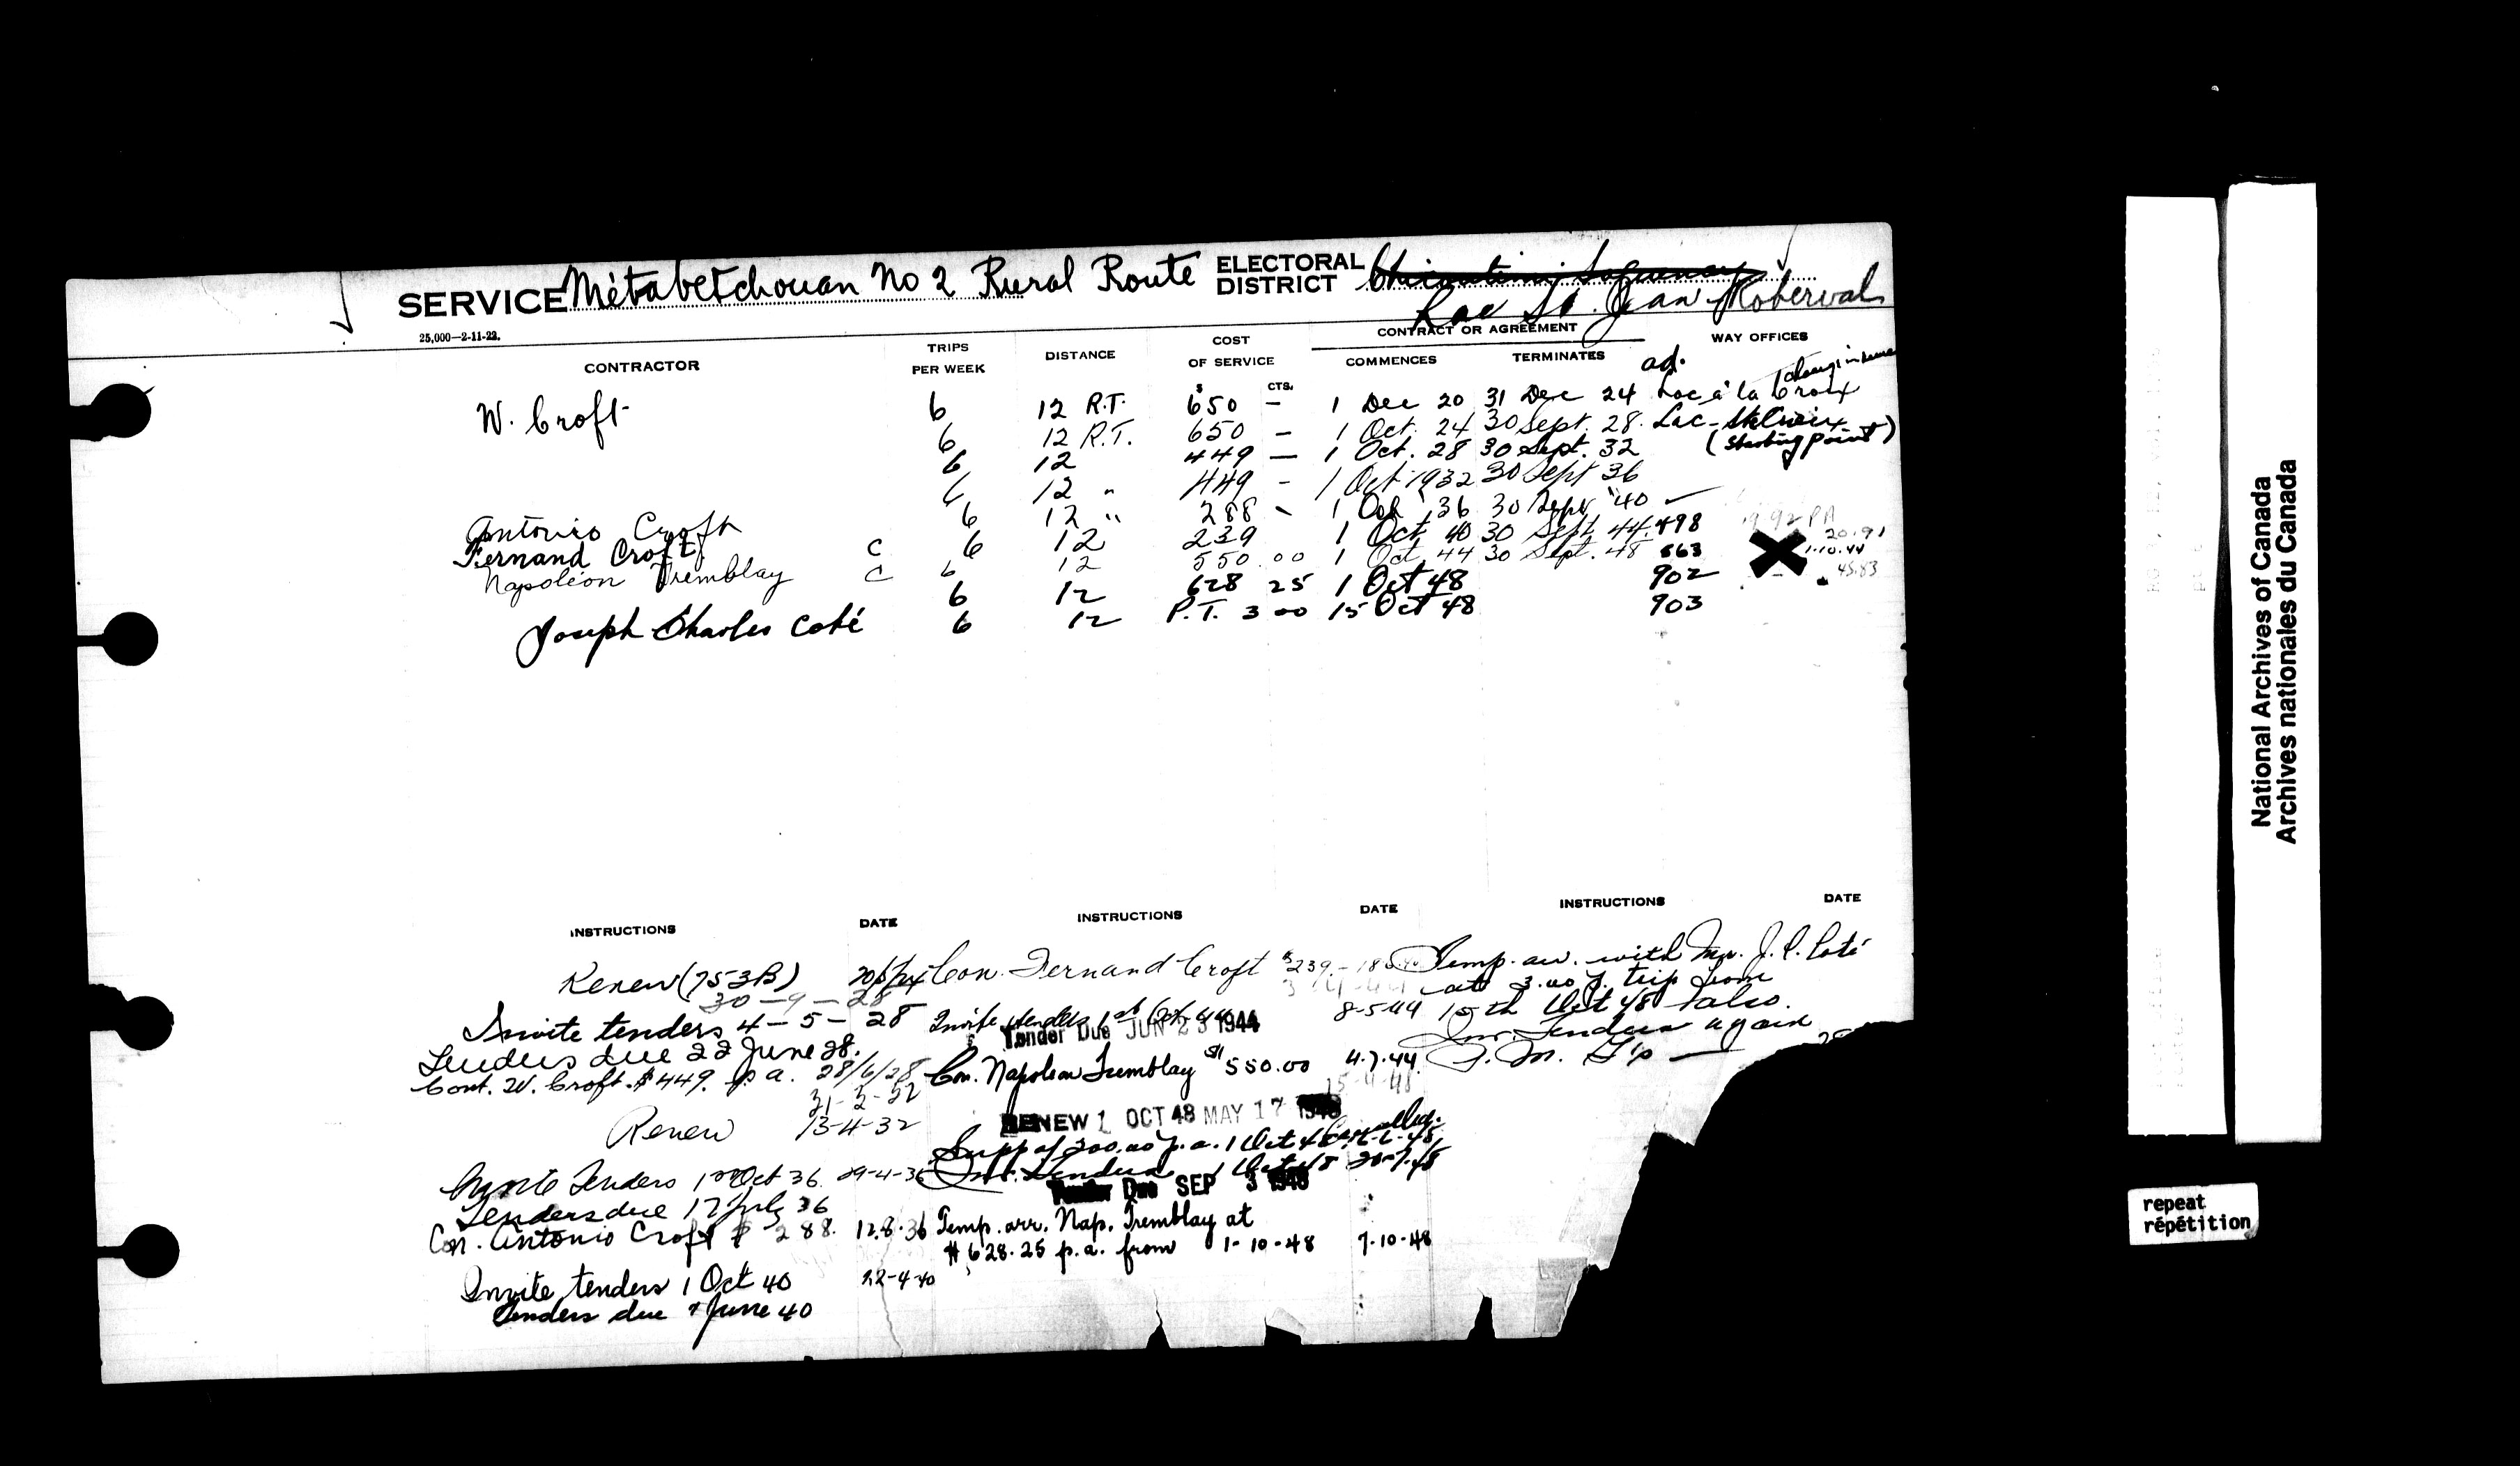 SERVICE Métabetchouan No 2 Rural Route ELECTORAL DISTRICT Chicoutimi Saguenay
Lac St. Jean Roberval
25,000—2-11-22.
CONTRACTOR TRIPS PER WEEK DISTANCE COST OF SERVICE CONTRACT OR AGREEMENT COMMENCES TERMINATES WAY OFFICES
ad. change in name
$ CTS.
W. Croft 6 12 R.T. 650 — 1 Dec 20 31 Dec 24 Lac à la Croix
6 12 R.T. 650 — 1 Oct. 24 30 Sept. 28. Lac-Ste Croix
6 12 449 — 1 Oct. 28 30 Sept. 32 (Starting point)
6 12 " 449 - 1 Oct 1932 30 Sept 36
Antonio Croft 6 12 " 288 - 1 Oct 36 30 Sept '40
Fernand Croft C 6 12 239 1 Oct. 40 30 Sept. 44. 498 19.92 PA 20.91
Napoléon Tremblay C 6 12 550.00 1 Oct 44 30 Sept. 48 863 1.10.44
6 12 628 25 1 Oct 48 902 45.83
Joseph Charles Coté 6 12 P.T. 3 00 15 Oct 48 903
INSTRUCTIONS DATE INSTRUCTIONS DATE INSTRUCTIONS DATE
Renew (753B)
30-9-28
Invite tenders 4-5-28
Tenders due 22 June 28.
Cont. W. Croft. $449. p a. 28/6/28
31-3-32
Renew 13-4-32
Invite Tenders 1st Oct 36. 29-4-36
Tenders due 17 July 36
Con. Antonio Croft $ 288. 12.8.36
Invite tenders 1 Oct 40 22-4-40
Tenders due June 40
Con. Fernand Croft $239.-
Invite tenders 1st Oct 44 8-5-44
Tender Due JUN 23 1944
Con. Napoleon Tremblay $550.00 4.7.44.
15-4-48
RENEW 1 OCT 48 MAY 17 1948
Supp of 200.00 p.a. 1 Oct 48 Cancelled.
Inv. Tenders 1 Oct 48 20-7-48
Tender Due SEP 3 1948
Temp. arr. Nap. Tremblay at
$628.25 p.a. from 1-10-48 7-10-48
Temp. arr. with Mr. J. C. Coté
at 3.00 p. trip from
15th Oct 48 also.
Inv. Tenders again
National Archives of Canada
Archives nationales du Canada
repeat
répétition